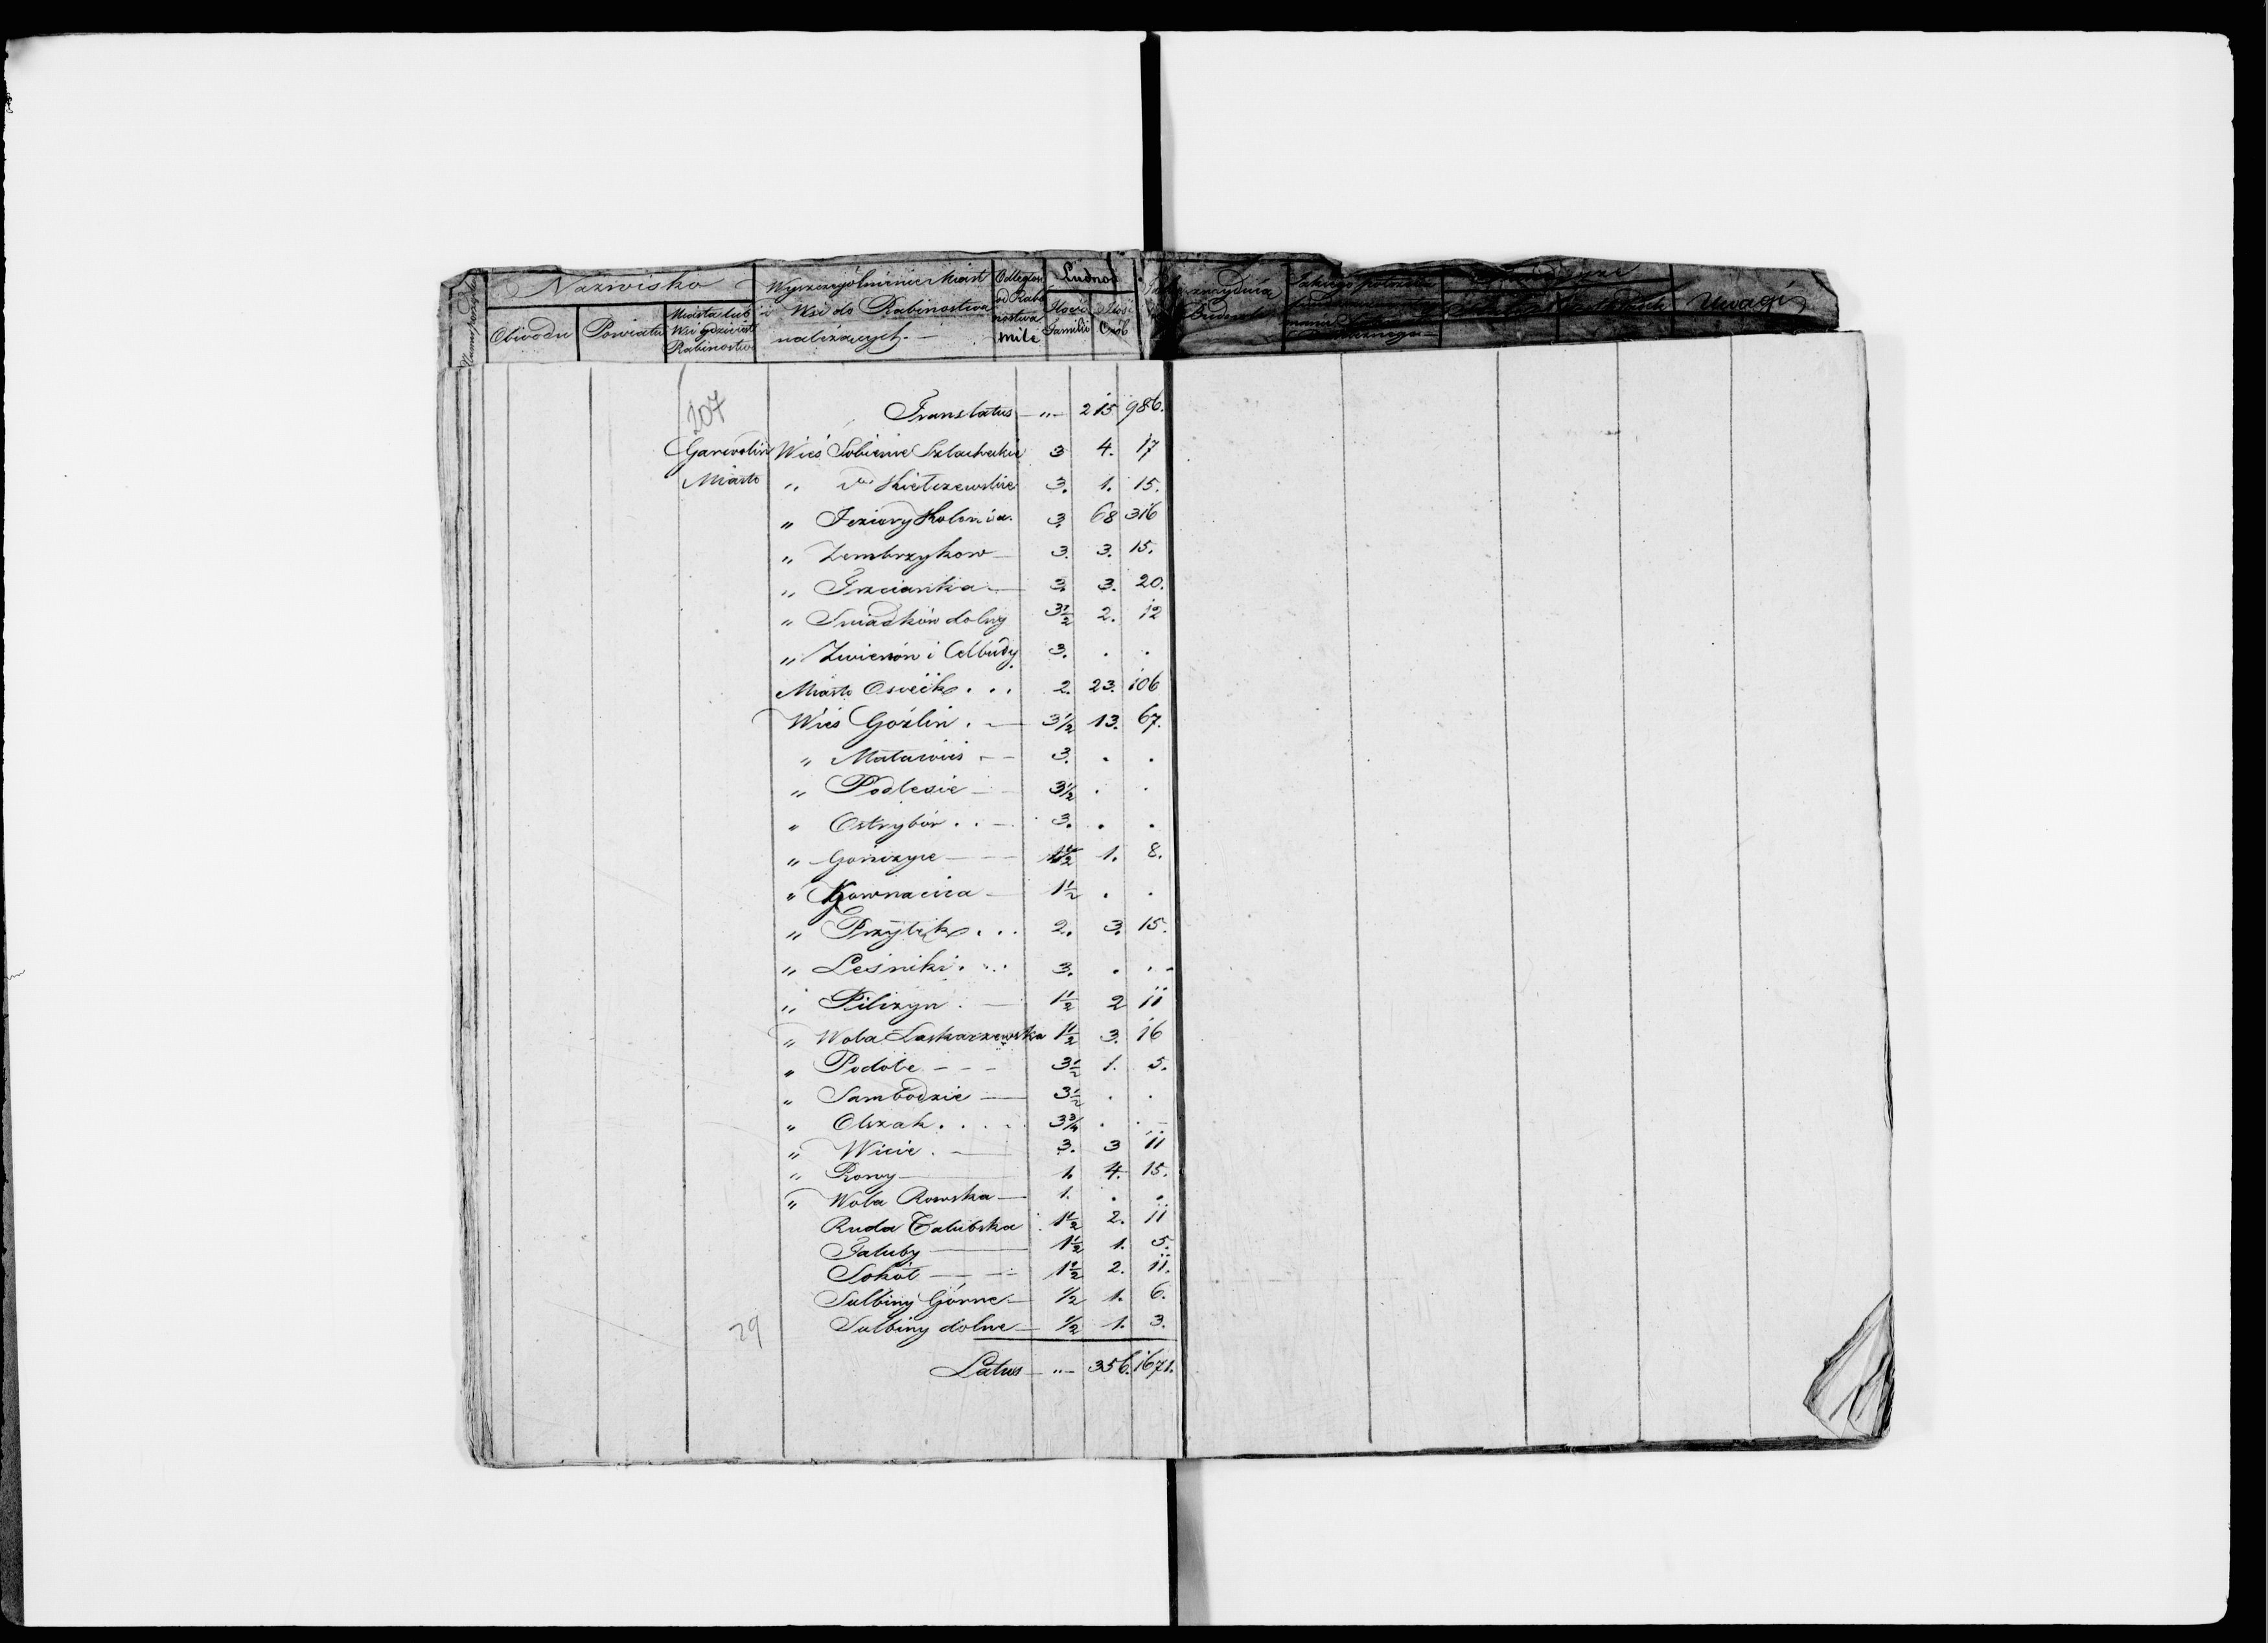 Nazwisko
Obwodu
Powiatu
Miasta lub
Wsi gdzie jest
Rabinostwo
Wyszczególnienie Miast
i Wsi do Rabinostwa
należących. —
Odległość
od Rabi
nostwa
mile
Ludność
Ilość
Familii
Ilość
Osób
Uwagi
207
Translatus — „ — 215 986.
Garwolin Wieś Sobienie Szlacheckie 3 4. 17
Miasto „ do Kiełczewskie 3. 1. 15.
„ Jeziory Kolonia. 3. 68 316
„ Zembrzykow — 3. 3. 15.
„ Trzcianka — 3. 3. 20.
„ Sniadków dolny 3 1/2 2. 12
„ Zwierzón i Celbudy 3. . .
Miasto Osieck . . . 2. 23. 106
Wieś Goźlin . — 3 1/2 13. 67.
„ Maławieś - — 3. . .
„ Podlesie — 3 1/2 . .
„ Ostrybór . . — 3. . .
„ Gończyce — 1 1/2 1. 8.
„ Kownacica — 1 1/2 . .
„ Przyłęk . . . 2. 3. 15.
„ Leśniki . . . 3. . . .
„ Pilczyn . — 1 1/2 2 11
„ Wola Łaskarzewska 1 1/2 3. 16
„ Podole — — — 3 1/2 1. 5.
„ Sambodzie — 3 1/2 . .
„ Olszak . . . . 3 3/4 . .
„ Wicie . — 3. 3 11
„ Rowy — 1. 4. 15.
„ Wola Rowska — 1. . .
Ruda Talubska . 1 1/2 2. 11
Taluby — 1 1/2 1. 5.
Sokół — — 1 1/2 2. 11.
Sulbiny Górne — 1/2 1. 6.
29 Sulbiny dolne — 1/2 1. 3.
Latus — „ — 356. 1671.